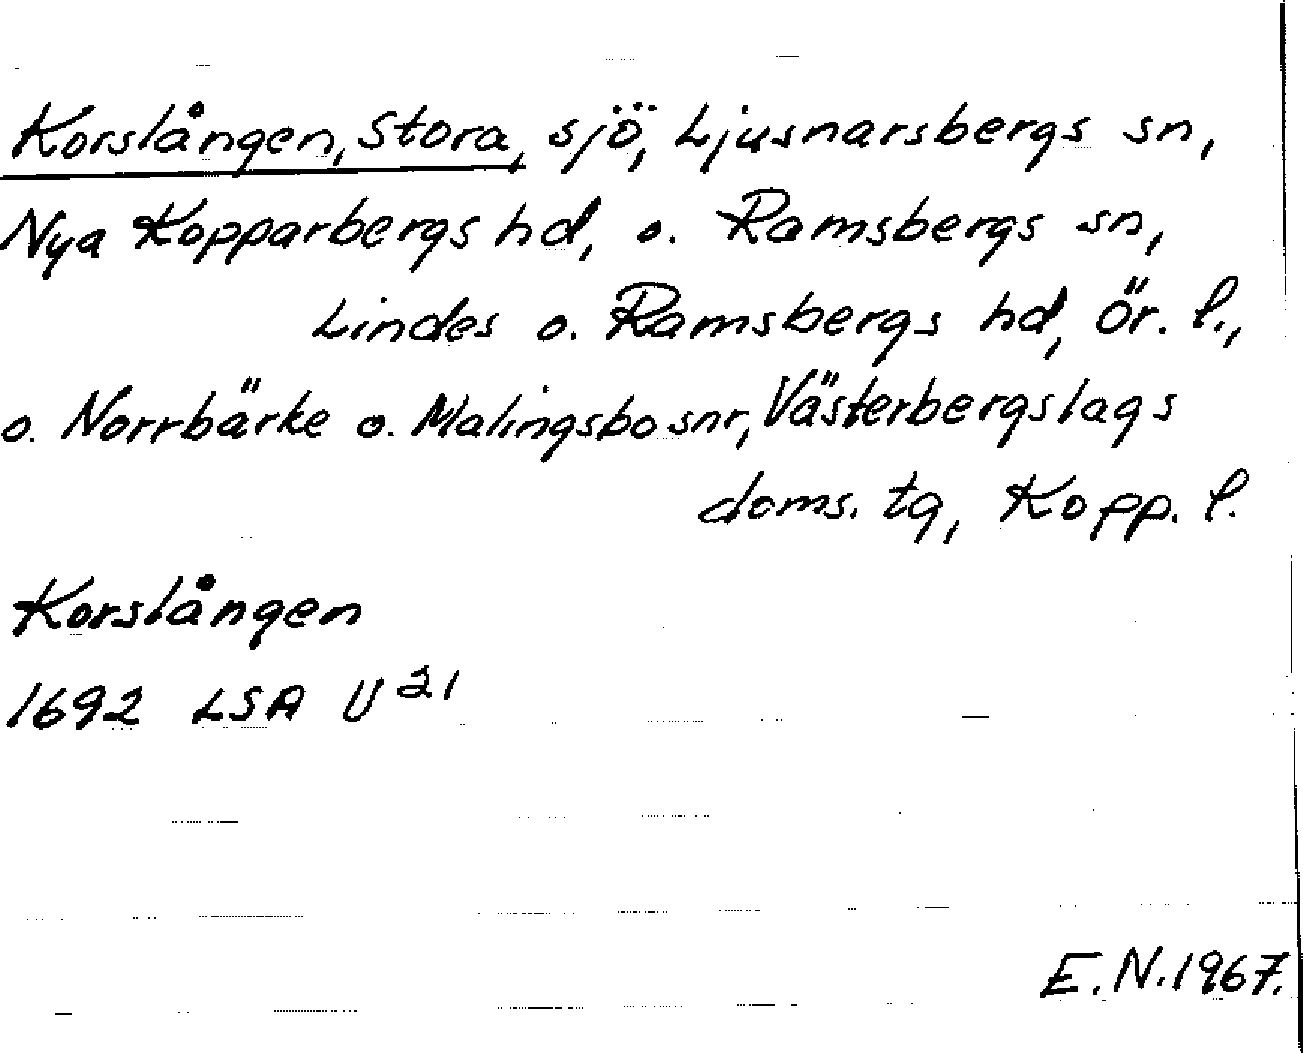 Korslången, Stora, sjö, Ljusnarsbergs sn,
Nya Kopparbergs hd, o. Ramsbergs sn,
Lindes o. Ramsbergs hd, Ör. l.,
o. Norrbärke o. Malingsbo snr, Västerbergslags
doms. tg, Kopp. l.
Korslången
1692 LSA U 21
E.N. 1967.